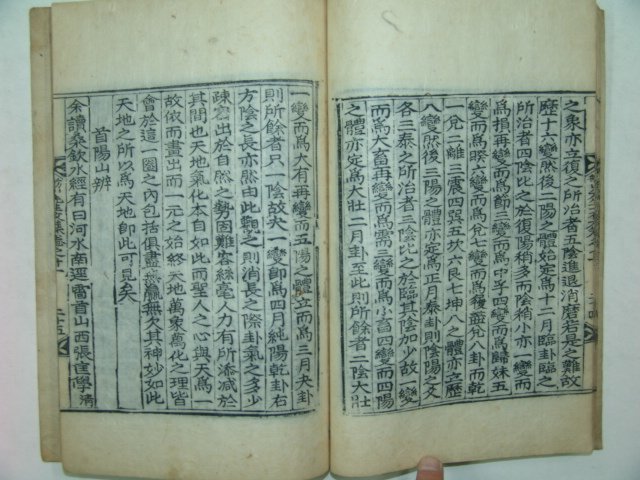 之象亦立復之所治者五陰進退消磨若是之難故
歷十六變然後二陽之體始定爲十二月臨卦臨之
所治者四陰比之於復陽稍多而陰稍小亦一變而
爲損再變而爲節三變而爲中孚四變而爲歸妹五
變而爲睽六變而爲兌七變而爲履盡兌八卦而乾
一兌二離三震四巽五坎六艮七坤八之體亦立歷
八變然後三陽之體亦定爲正月泰卦則陰陽之爻
各三泰之所治者三陰比之於臨其陰加少故一變
而爲大畜再變而爲需三變而爲小畜四變而四陽
之體亦定爲大壯二月卦至此則所餘者二陰大壯
一變而爲大有再變而五陽之體立而爲三月夬卦
則所餘者只一陰故夬一變卽爲四月純陽乾卦右
方陰之長亦然由此觀之則消長之際卦氣之多少
疎密出於自然之勢固難容絲毫人力有所添減於
其間也天地氣化本自如此而聖人之心與天爲一
故依而畫出一元之始終天地萬象萬化之理皆
會於這一圈之內包括俱盡無欠其神妙如此
天地之所以爲天地卽此可見矣
首陽山辨
余讀桑欽水經有曰河水南逕雷首山西張匡學淸
二十五